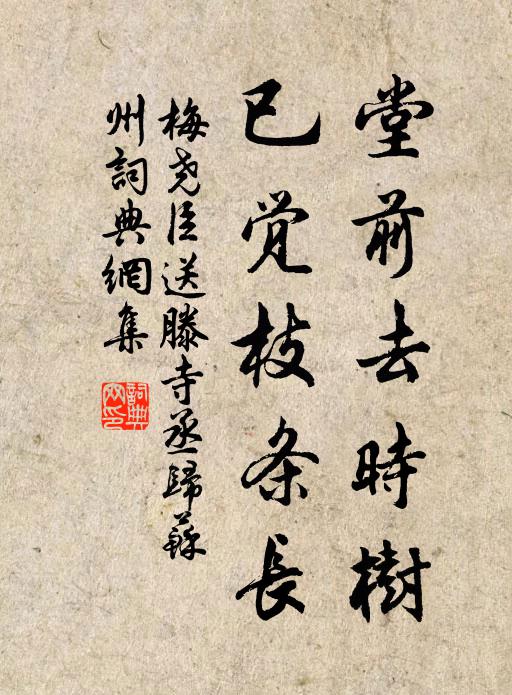 堂前去時樹
已觉枝条長
梅尧臣送滕寺丞歸蘇
州詞典網集
詞典
网印